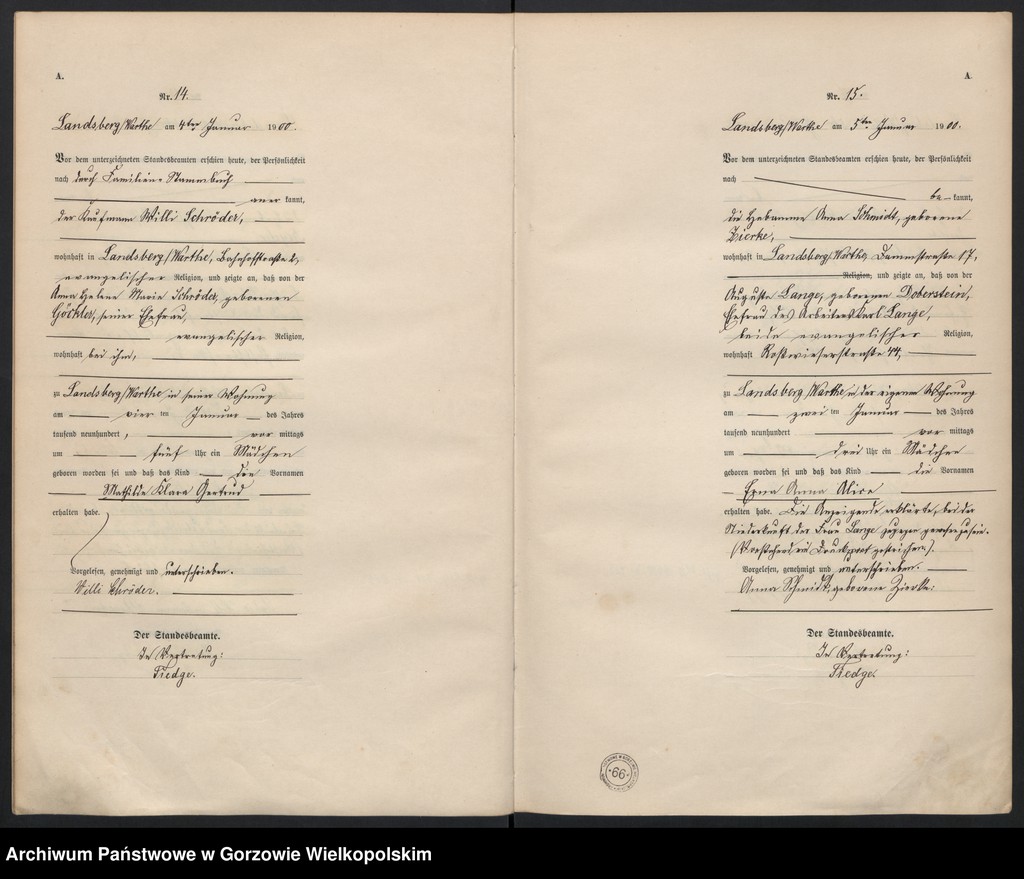 A.
Nr. 14.
Landsberg/Warthe am 4ten Januar 1900.
Vor dem unterzeichneten Standesbeamten erschien heute, der Persönlichkeit
nach durch Familien-Stammbuch
aner kannt,
der Kaufmann Willi Schröder,
wohnhaft in Landsberg/Warthe, Bahnhofstraße 2,
evangelischer Religion, und zeigte an, daß von der
Anna Helene Marie Schröder, geborenen
Göchler, seiner Ehefrau,
evangelischer Religion,
wohnhaft bei ihm,
zu Landsberg/Warthe in seiner Wohnung
am vier ten Januar des Jahres
tausend neunhundert, vor mittags
um fünf Uhr ein Mädchen
geboren worden sei und daß das Kind den Vornamen
Mathilde Klara Gertrud
erhalten habe.
Vorgelesen, genehmigt und unterschrieben.
Willi Schröder.
Der Standesbeamte.
In Vertretung:
Tiedge.
A
Nr. 15.
Landsberg/Warthe am 5ten Januar 1900.
Vor dem unterzeichneten Standesbeamten erschien heute, der Persönlichkeit
nach
be kannt,
die Hebamme Anna Schmidt, geborene
Zierke,
wohnhaft in Landsberg/Warthe, Dammstraße 17,
Religion, und zeigte an, daß von der
Auguste Lange, geborenen Doberstein,
Ehefrau des Arbeiters Karl Lange,
beide evangelischer Religion,
wohnhaft Roßwieserstraße 44,
zu Landsberg/Warthe in der eigenen Wohnung
am zwei ten Januar des Jahres
tausend neunhundert vor mittags
um drei Uhr ein Mädchen
geboren worden sei und daß das Kind die Vornamen
Erna Anna Alice
erhalten habe. Die Anzeigende erklärte, bei der
Niederkunft der Frau Lange zugegen gewesen zu sein.
(Vorstehend ein Druckwort gestrichen).
Vorgelesen, genehmigt und unterschrieben.
Anna Schmidt, geborene Zierke.
Der Standesbeamte.
In Vertretung:
Tiedge.
66
Archiwum Państwowe w Gorzowie Wielkopolskim